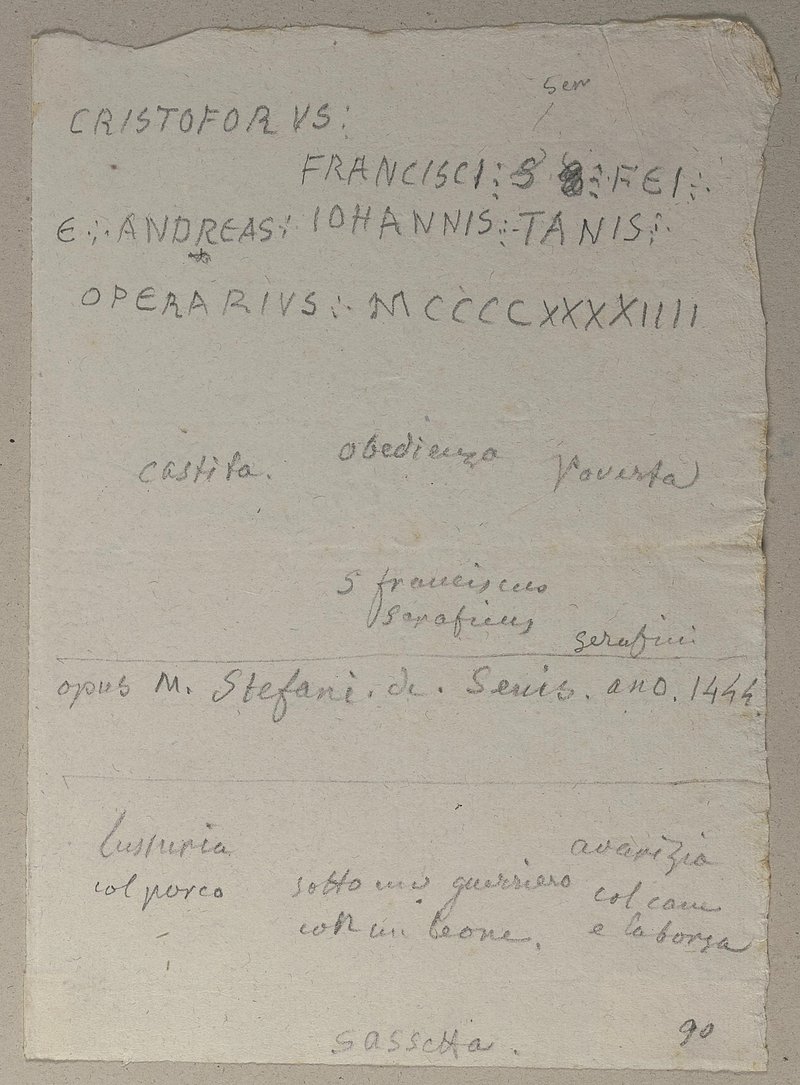 Sen
CRISTOFORVS:
FRANCISCI: S : FEI:
E: ANDREAS: IOHANNIS: TANIS:
OPERARIVS: MCCCCXXXXIIII
castita. obedienza Poverta
S franciscus
Seraficus serafini
opus M. Stefani. de. Senis. ano. 1444.
lussuria avarizia
col porco sotto un guerriero col cane
con un leone. e la borsa
sassetta. 90